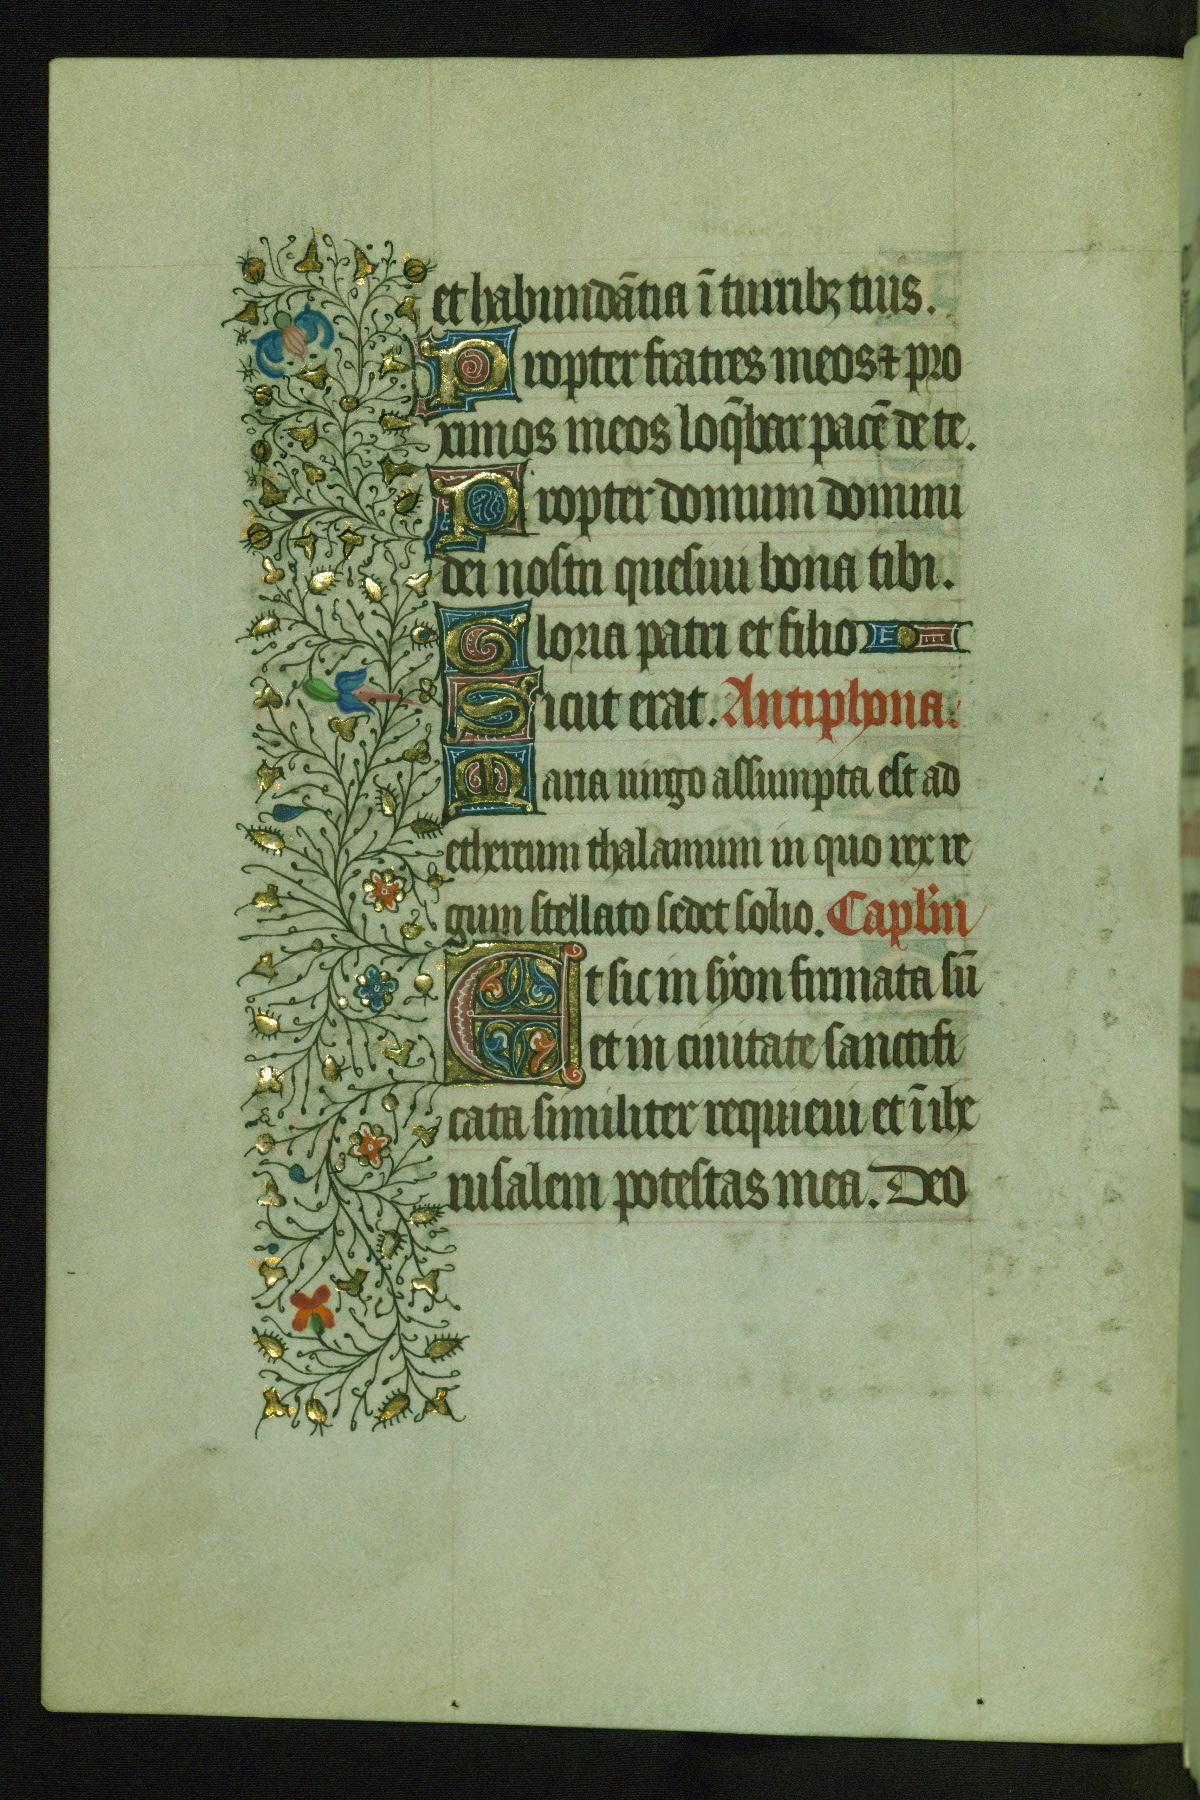 et habundātia ī turribꝫ tuis.
Propter fratres meos ⁊ pro
ximos meos loq̄bar pacē de te.
Propter domum domini
dei nostri quesiui bona tibi.
Gloria patri et filio
Sicut erat. Antiphona.
Maria uirgo assumpta est ad
ethereum thalamum in quo rex re
gum stellato sedet solio. Capl'm
Et sic in syon firmata sū
et in ciuitate sanctifi
cata similiter requieui et ī ihe
rusalem potestas mea. Deo